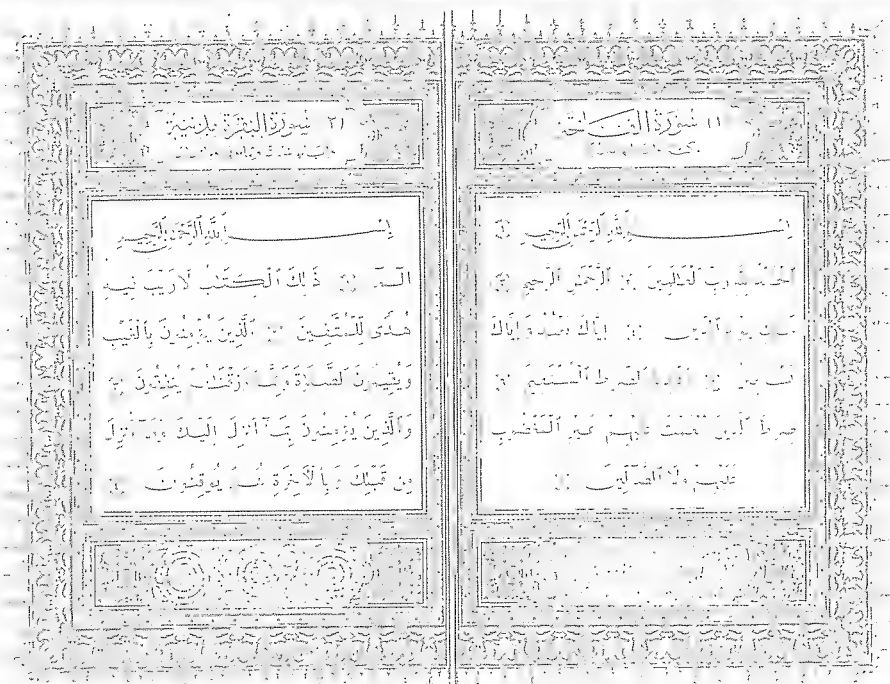 ١) سُورَةُ الفَاتِحَة
بِسْمِ ٱللَّهِ ٱلرَّحْمَٰنِ ٱلرَّحِيمِ
ٱلْحَمْدُ لِلَّهِ رَبِّ ٱلْعَالَمِينَ ٱلرَّحْمَٰنِ ٱلرَّحِيمِ
إِيَّاكَ نَعْبُدُ وَإِيَّاكَ
ٱلصِّرَاطَ ٱلْمُسْتَقِيمَ
صِرَاطَ ٱلَّذِينَ أَنْعَمْتَ عَلَيْهِمْ غَيْرِ ٱلْمَغْضُوبِ
عَلَيْهِمْ وَلَا ٱلضَّآلِّينَ
٢) سُورَةُ البَقَرَةِ مَدَنِيَّة
بِسْمِ ٱللَّهِ ٱلرَّحْمَٰنِ ٱلرَّحِيمِ
الٓمٓ ذَٰلِكَ ٱلْكِتَٰبُ لَا رَيْبَ فِيهِ
هُدًى لِّلْمُتَّقِينَ ٱلَّذِينَ يُؤْمِنُونَ بِٱلْغَيْبِ
وَيُقِيمُونَ ٱلصَّلَوٰةَ وَمِمَّا رَزَقْنَٰهُمْ يُنفِقُونَ
وَٱلَّذِينَ يُؤْمِنُونَ بِمَآ أُنزِلَ إِلَيْكَ وَمَآ أُنزِلَ
مِن قَبْلِكَ وَبِٱلْأٓخِرَةِ هُمْ يُوقِنُونَ